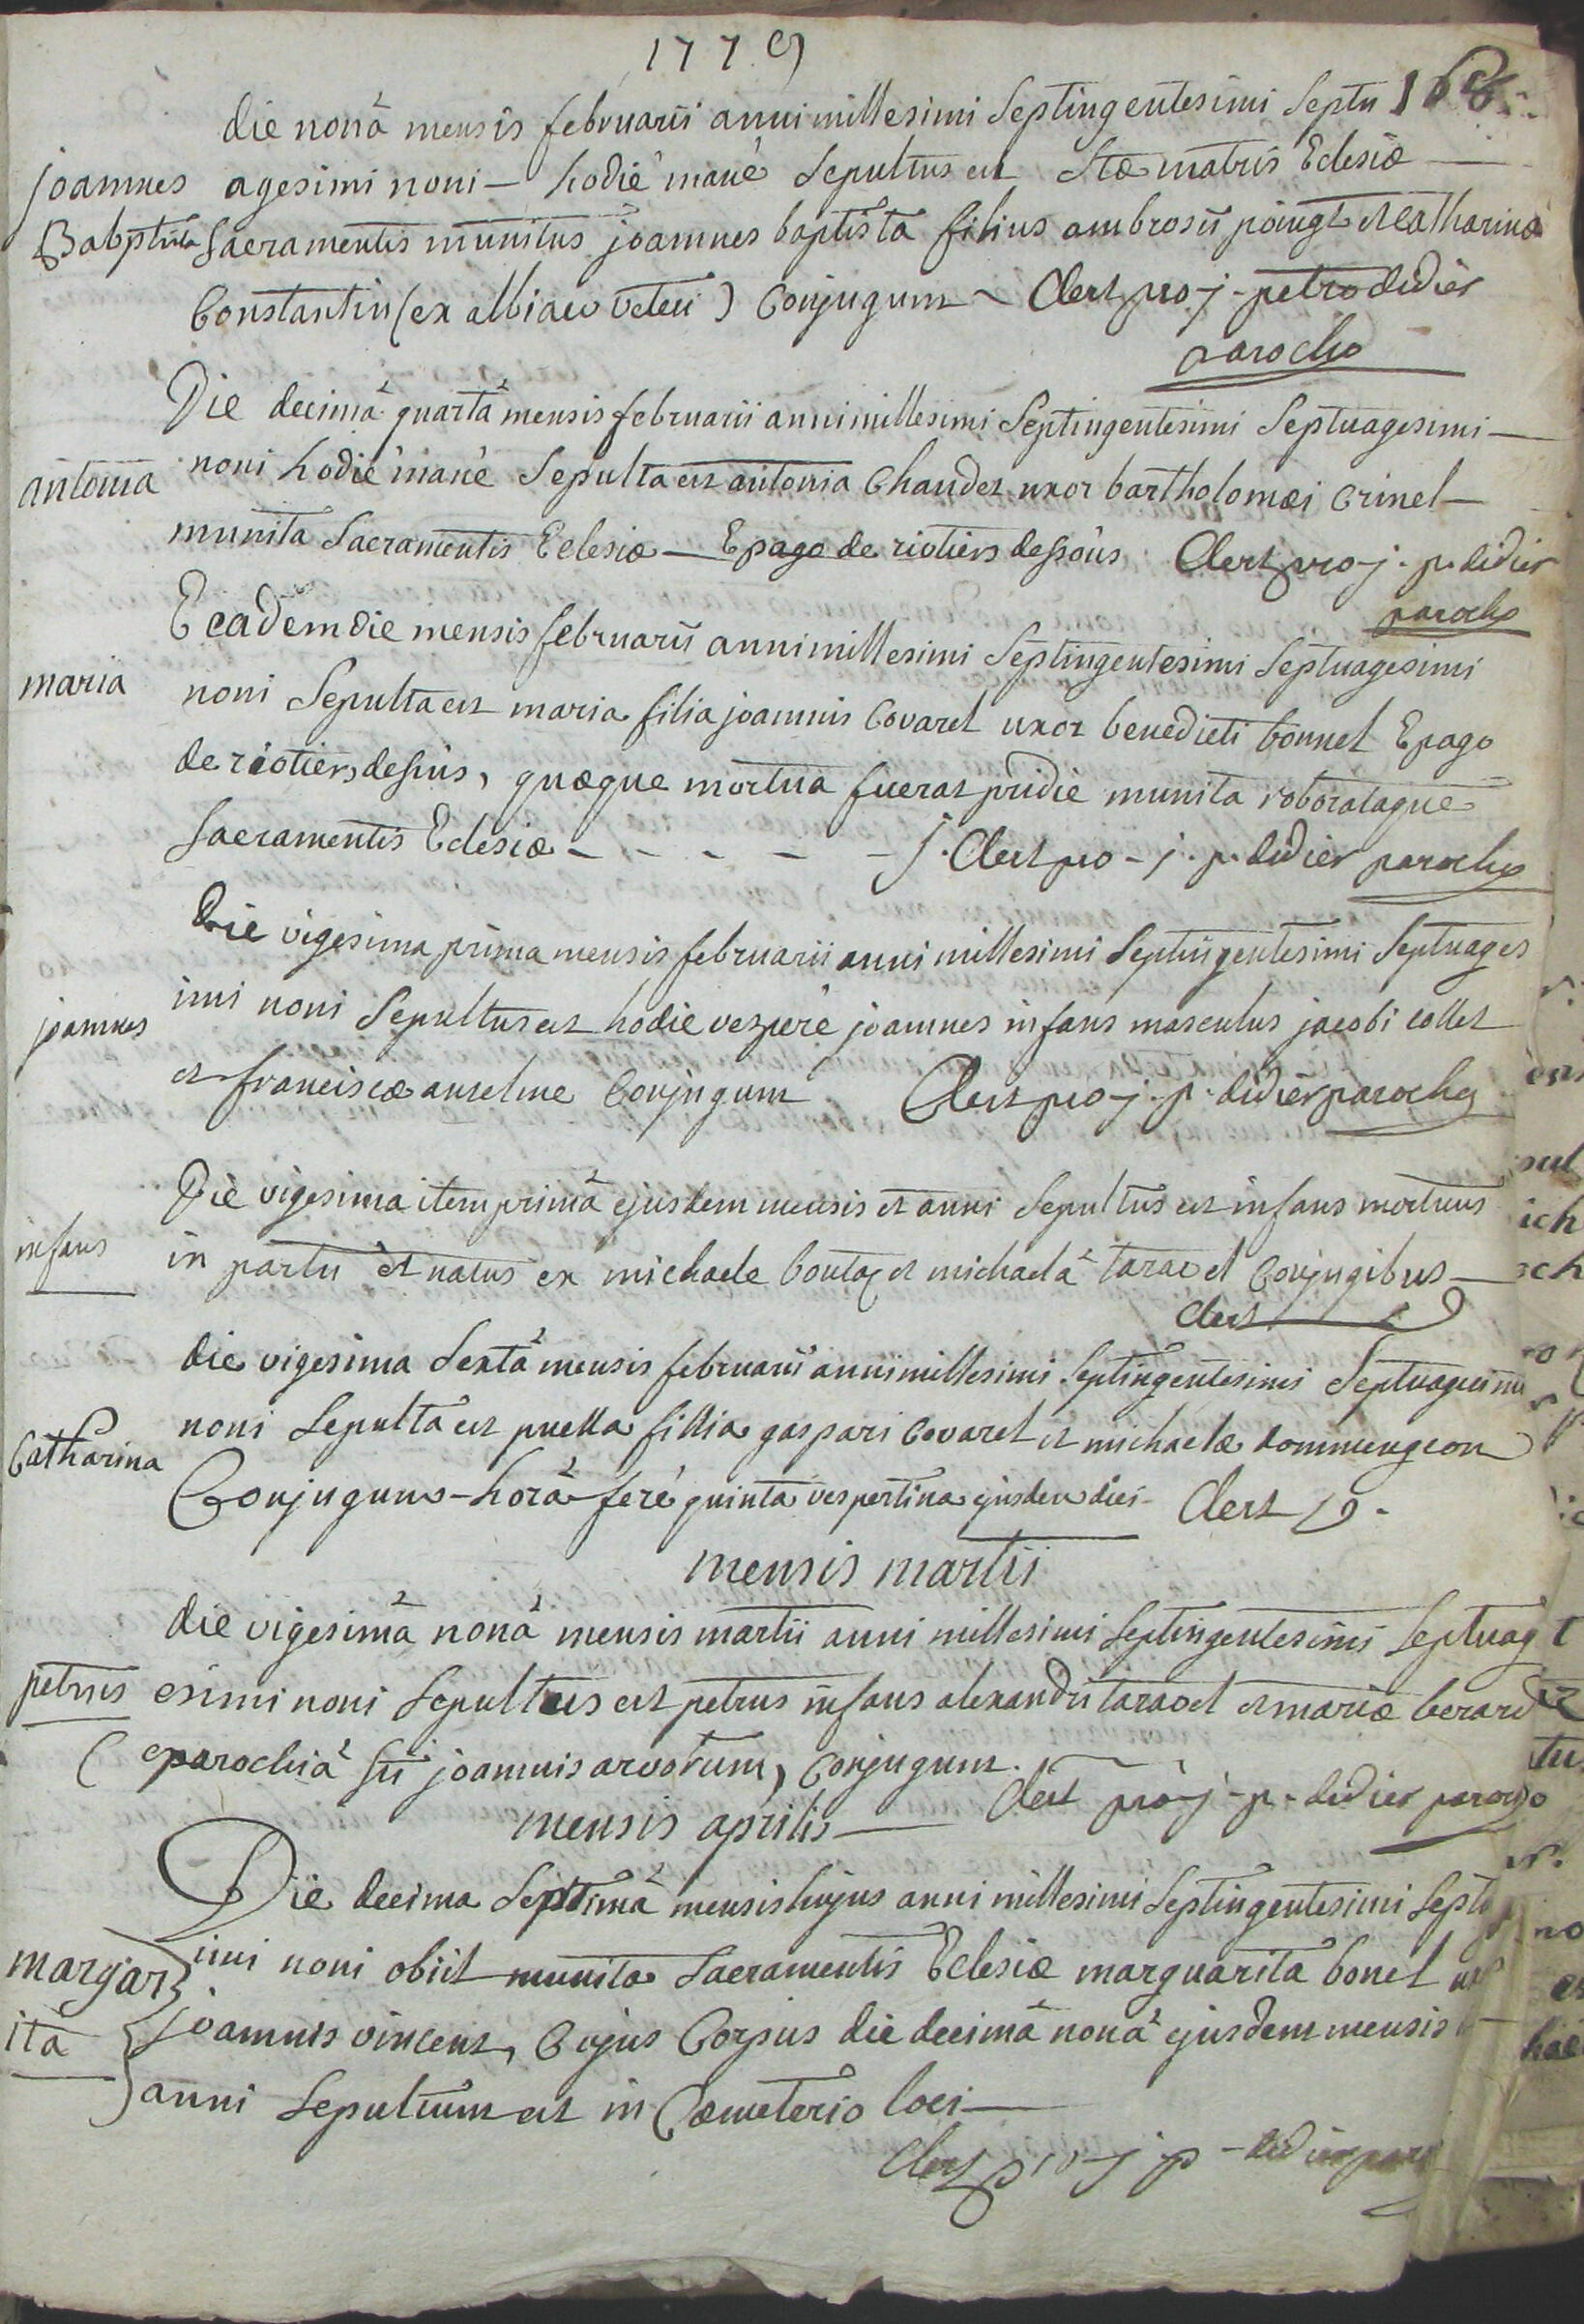 1779
168
die nonâ mensis februarii anni millesimi Septingentesimi Septu
joannes agesimi noni – hodiè manè Sepultus est Stæ matris Eclesiæ —
Babptista Sacramentis munitus joannes baptista filius ambrosii poingt et Catharinæ
Constantin (ex albiaco veteri) Conjugum ~ Clert pro j. petro didier
parocho
Die decimâ quartâ mensis februarii anni millesimi Septingentesimi Septuagesimi —
antonia noni hodiè manè Sepulta est antonia Chaudet uxor bartholomæi Crinel —
munita Sacramentis Eclesiæ — E pago de riotiers dessous Clert pro j. p. didier
parocho
E eadem die mensis februarii anni millesimi Septingentesimi Septuagesimi
maria noni Sepulta est maria filia joannis Covarel uxor benedicti bonnel E pago
de riotiers dessus, quæque mortua fuerat pridiè munita roborataque
Sacramentis Eclesiæ - - - - - Clert pro - j. p. didier parocho
Die vigesima prima mensis februarii anni millesimi Septingentesimi Septuages
joannes imi noni Sepultus est hodiè vespere joannes infans masculus jacobi collet
et franciscæ anselme Conjugum Clert pro - j. p. didier parocho
Diè vigesima item primâ ejusdem mensis et anni Sepultus est infans mortuus
infans in partu et natus ex michaele boutaz et michaelâ taravel Conjugibus —
Clert
die vigesima Sextâ mensis februarii anni millesimi Septingentesimi Septuagesimi
Catharina noni Sepulta est puella fillia gaspari Covarel et michaelæ dommengeon
Conjugum - horâ ferè quinta vespertina ejusdem diei - Clert
mensis martii
die vigesimâ nonâ mensis martii anni millesimi Septingentesimi Septuag
petrus esimi noni Sepultus est petrus infans alexandri taravel et mariæ berard
(e parochiâ Sti joannis arvorum, Conjugum. Clert pro - j - p - didier parocho
mensis aprilis —
Die decima Septimâ mensis hujus anni millesimi Septingentesimi
margar imi noni obiit munita Sacramentis Eclesiæ marguarita bonel
ita joannis vincent, Cujus Corpus die decimâ nonâ ejusdem mensis
anni Sepultum est in Cæmeterio loci —
Clert pro j p - didier